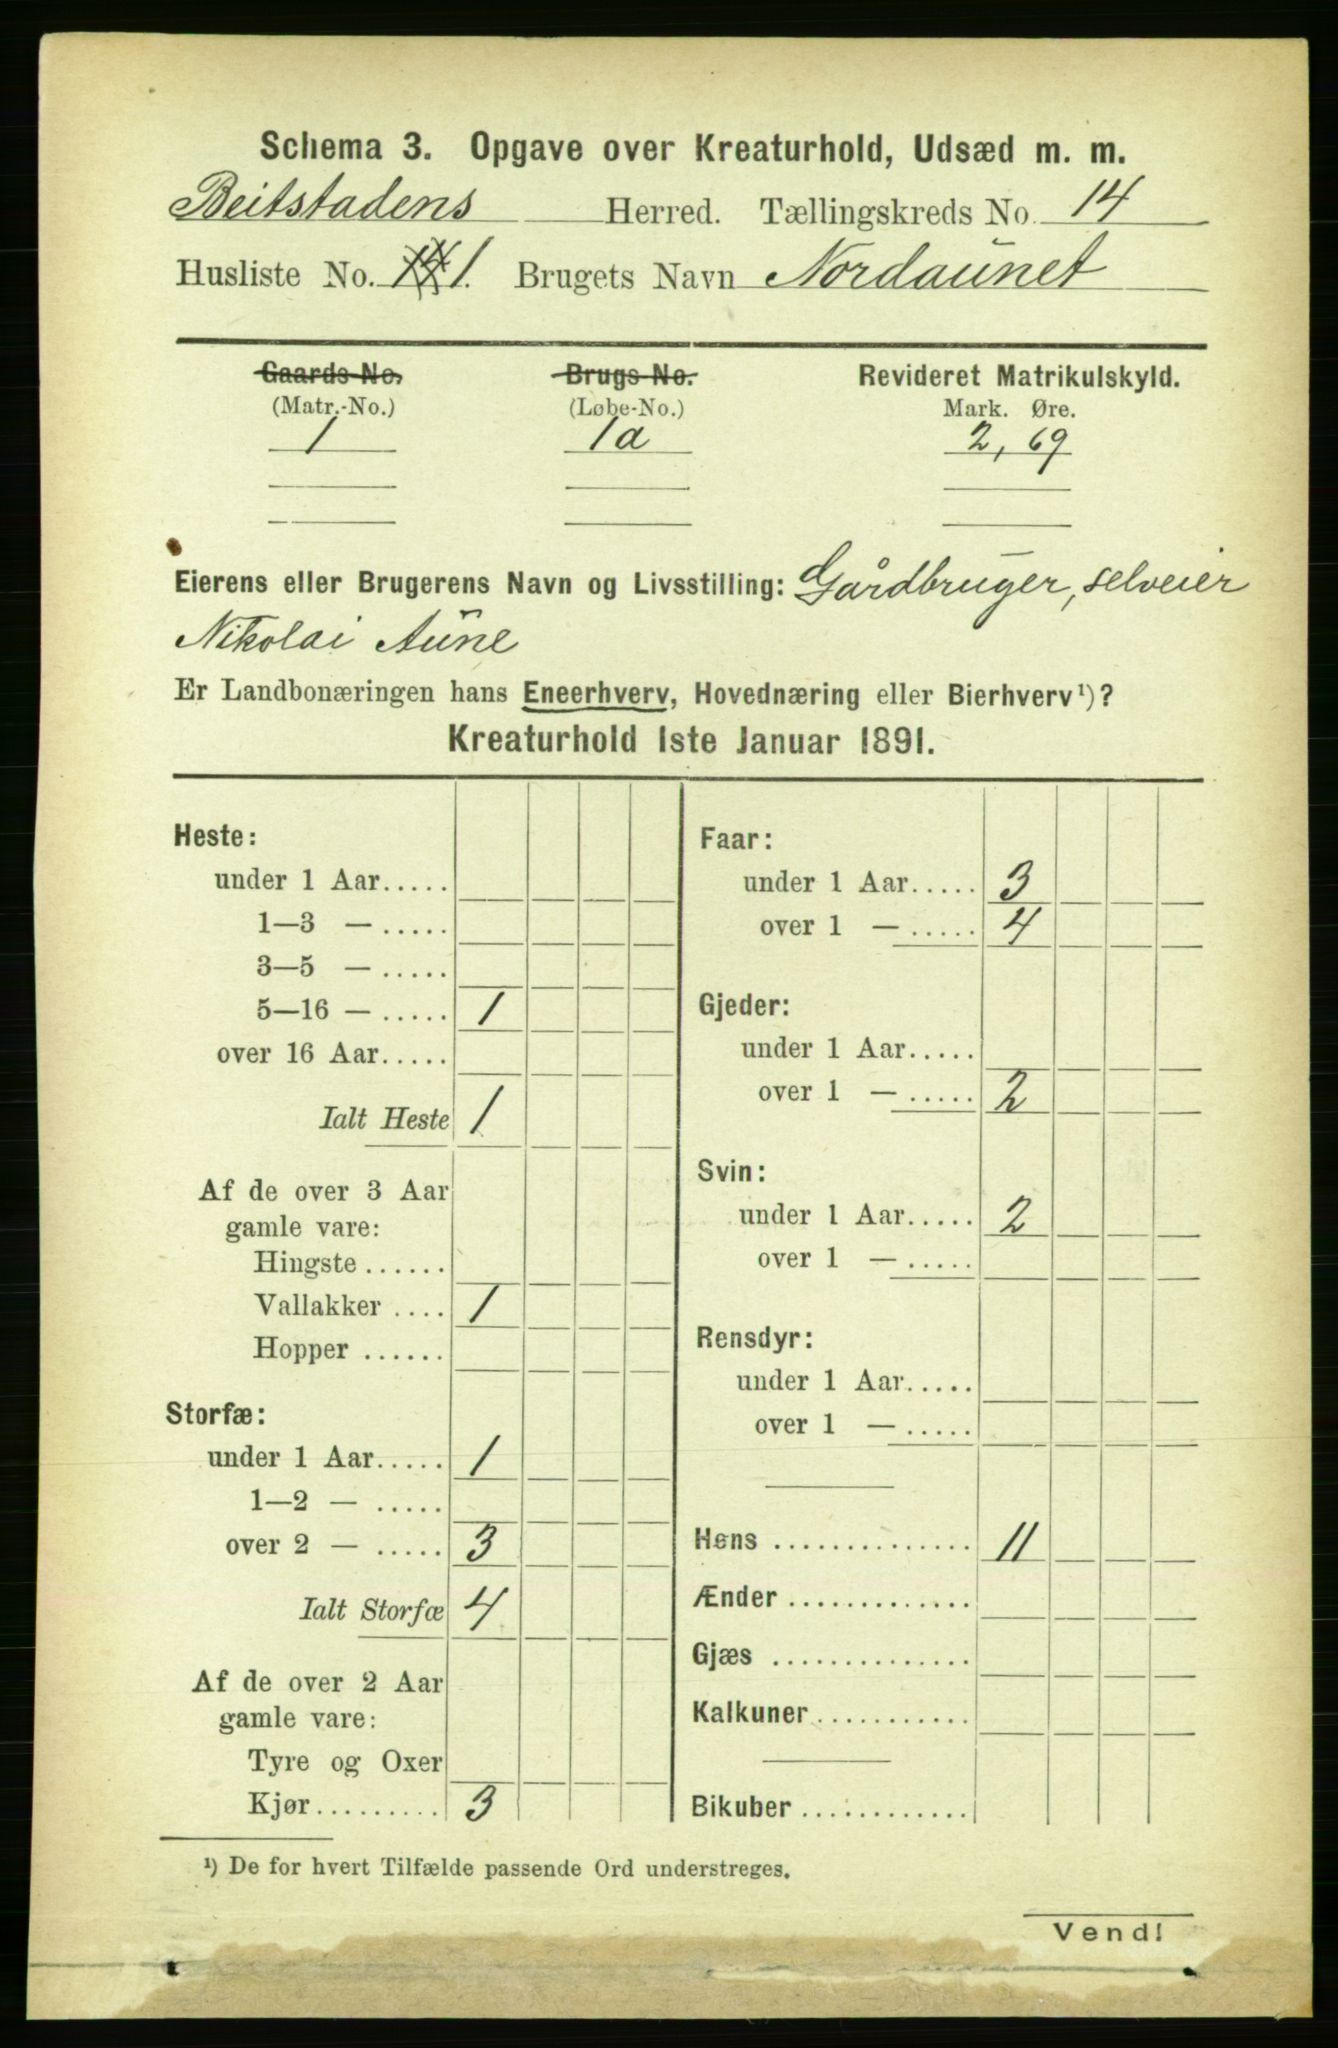 Schema 3. Opgave over Kreaturhold, Udsæd m. m.
Beitstadens Herred. Tællingskreds No. 14
Husliste No. 1. Brugets Navn Nordaunet
Gaards No. Brugs No. Revideret Matrikulskyld.
(Matr.-No.) (Løbe-No.) Mark. Øre.
1 1a 2, 69
Eierens eller Brugerens Navn og Livsstilling: Gårdbruger, selveier
Nikolai Aune
Er Landbonæringen hans Eneerhverv, Hovednæring eller Bierhverv¹)?
Kreaturhold 1ste Januar 1891.
Heste:
under 1 Aar.....
1—3 — .....
3—5 — .....
5—16 — ..... 1
over 16 Aar.....
Ialt Heste 1
Af de over 3 Aar
gamle vare:
Hingste ......
Vallakker .... 1
Hopper ......
Storfæ:
under 1 Aar..... 1
1—2 — .....
over 2 — ..... 3
Ialt Storfæ 4
Af de over 2 Aar
gamle vare:
Tyre og Oxer
Kjør......... 3
Faar:
under 1 Aar..... 3
over 1 — ..... 4
Gjeder:
under 1 Aar.....
over 1 — ..... 2
Svin:
under 1 Aar..... 2
over 1 — .....
Rensdyr:
under 1 Aar.....
over 1 — .....
Høns .............. 11
Ænder .............
Gjæs ..............
Kalkuner...........
Bikuber ............
¹) De for hvert Tilfælde passende Ord understreges.
Vend!